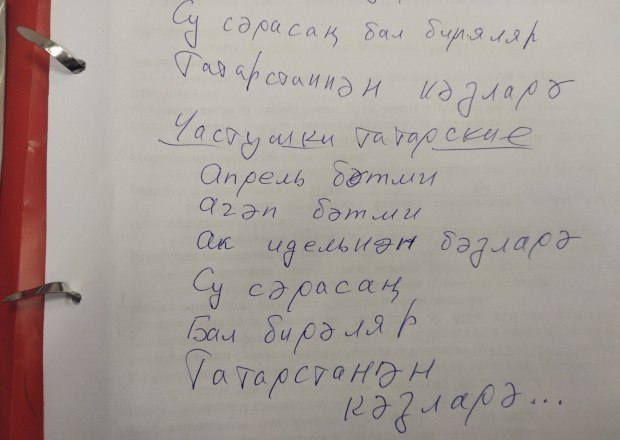 Су сәрасаң бал биряляр
Татарстаннән кәзларә
Частушки татарские
Апрель бәтми
агәп бәтми
ак идельнән бәзларә
Су сәрасаң
Бал бирәляр
Татарстанән
кәзларә...